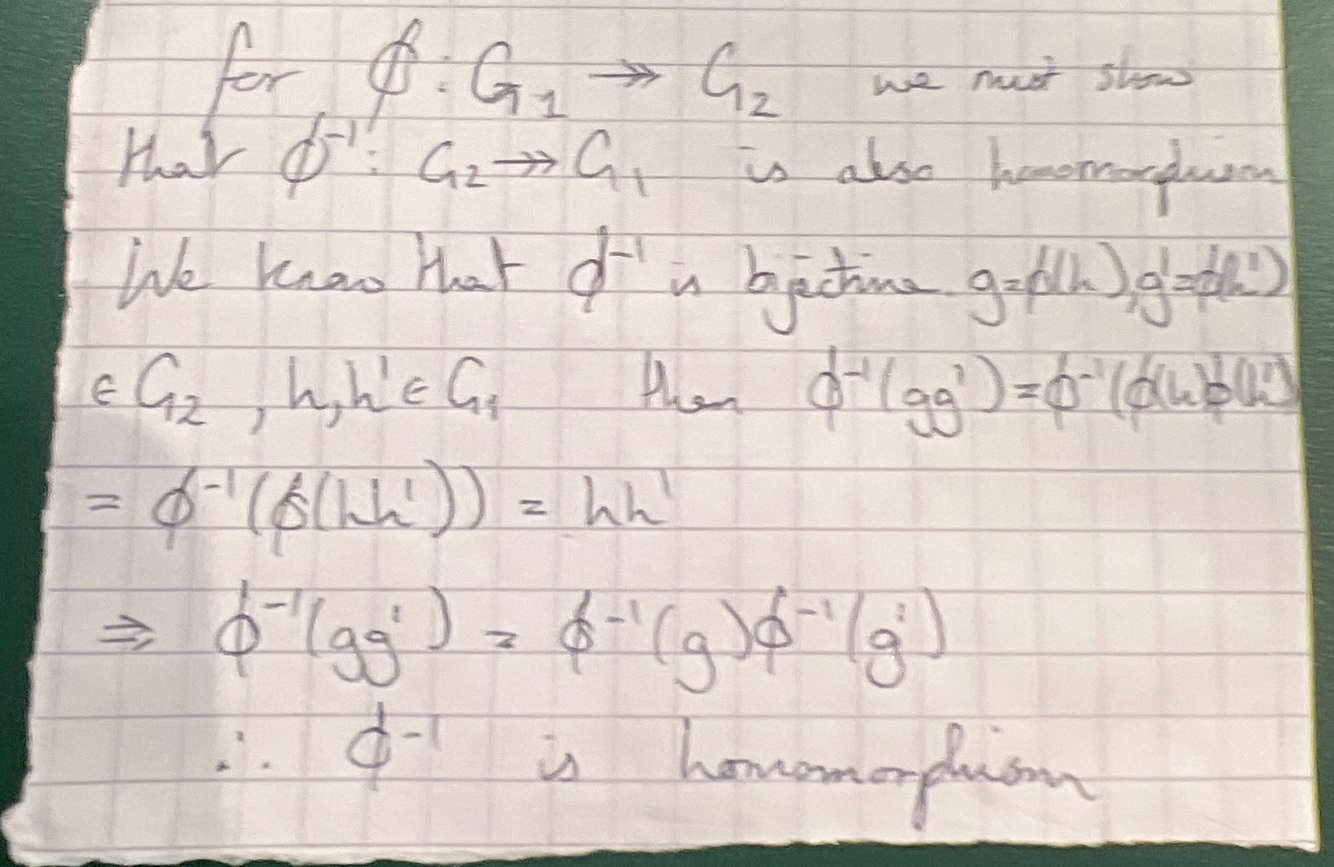 for ϕ: G₁ ↠ G₂ we must show
that ϕ⁻¹: G₂ ↠ G₁ is also homomorphism
We know that ϕ⁻¹ is bijective. g=ϕ(h), g'=ϕ(h')
∈ G₂, h,h' ∈ G₁ then ϕ⁻¹(gg')=ϕ⁻¹(ϕ(h)ϕ(h')
= ϕ⁻¹(ϕ(hh')) = hh'
⇒ ϕ⁻¹(gg') = ϕ⁻¹(g)ϕ⁻¹(g')
∴ ϕ⁻¹ is homomorphism